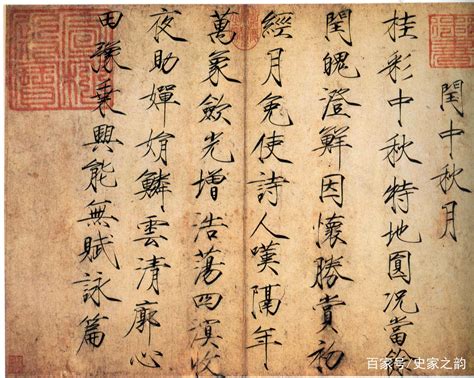 閏中秋月
桂彩中秋特地圓況當餘
閏魄澄鮮因懷勝賞初
經月免使詩人嘆隔年
萬象斂光增浩蕩四溟收
夜助嬋娟鱗雲清廓心
田豫乘興能無賦詠篇
百家号/史家之韵